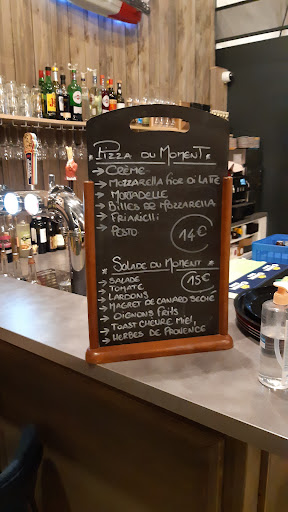 * PIZZA DU MOMENT *
→ CRÈME
→ MOZZARELLA FIOR DI LATTE
→ MORTADELLE
→ BILLES DE MOZZARELLA
→ FRIARIELLI
→ PESTO
14€
* SALADE DU MOMENT
15€
→ SALADE
→ TOMATE
→ LARDONS
→ MAGRET DE CANARD SECHÉ
→ OIGNONS FRITS
→ TOAST CHEVRE MIEL,
→ HERBES DE PROVENCE